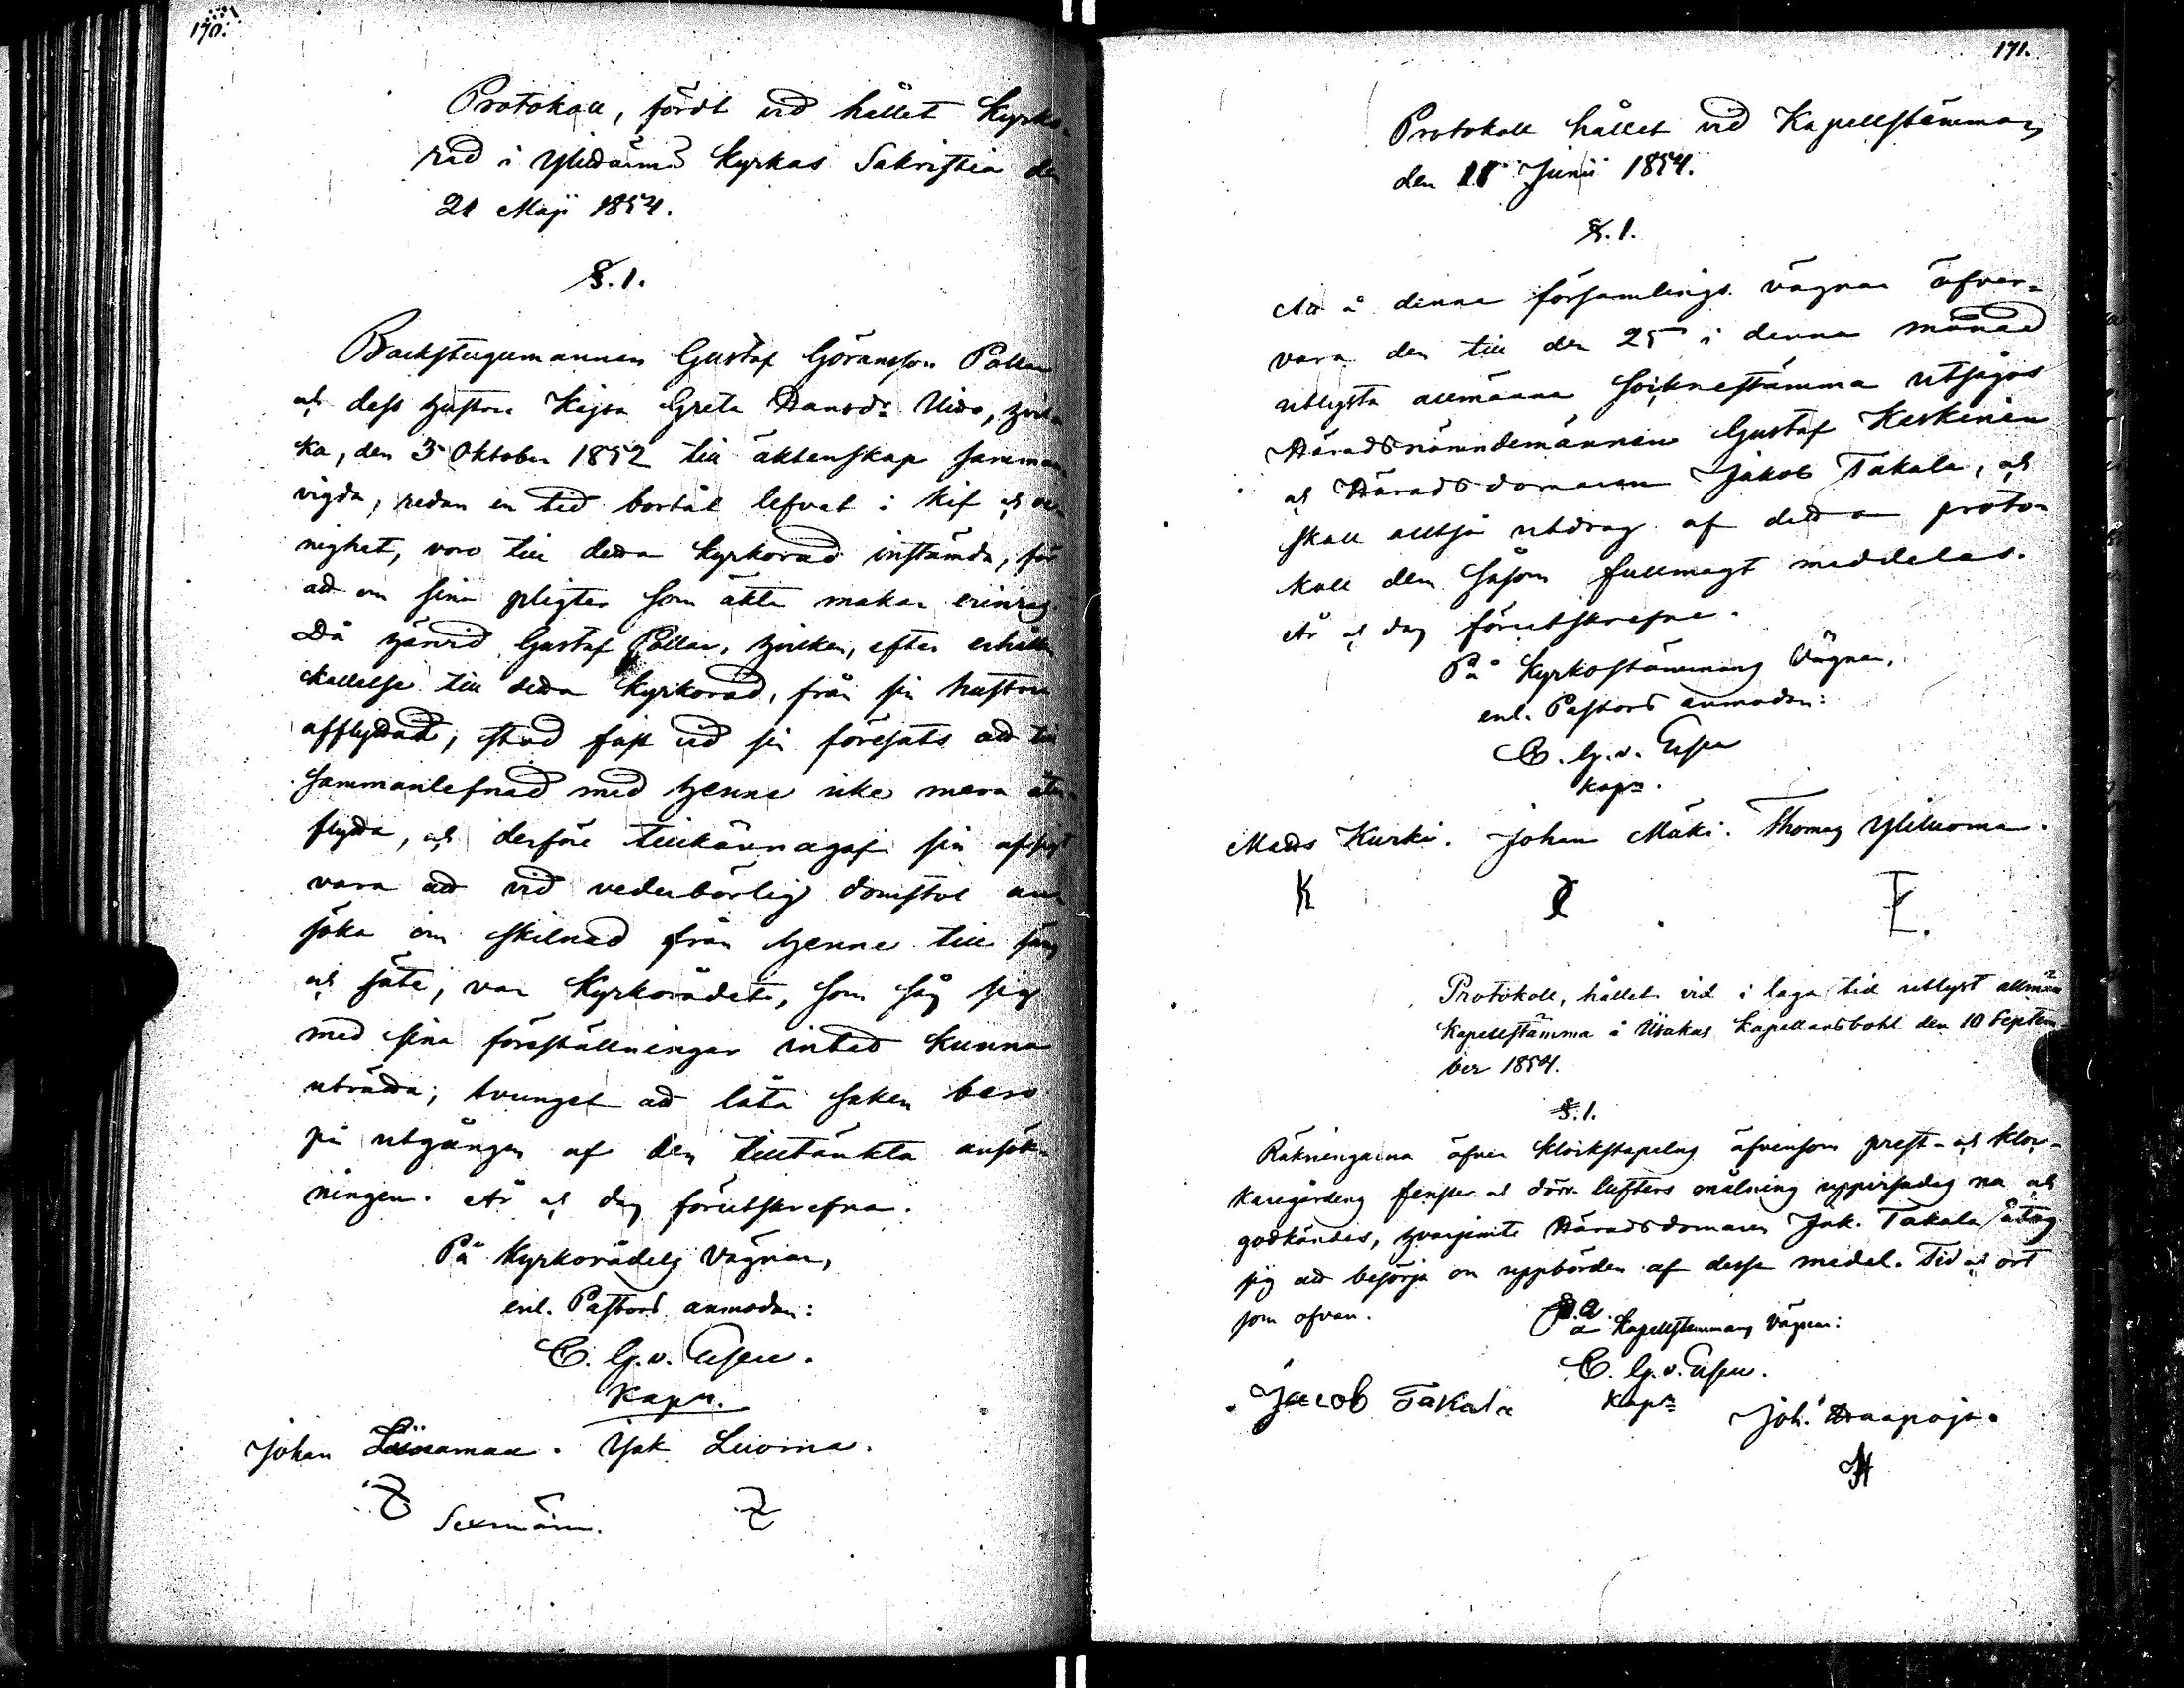 170.
Protokoll, fördt vid hållet Kyrko-
råd i Ylistämå Kyrkas Sakristia den
21 Maji 1854.
§. 1.
Backstugumannen Gustaf Göransson Pollar
och dess hustru Kajsa Greta Hansdr Uido, hvil-
ka, den 3 Oktober 1852 till äktenskap samman-
vigda, redan en tid bortåt lefvat i kif och oe-
nighet, voro till detta Kyrkoråd instämda, för
att om sina pligter som äkta makar erinras.
Då härvid Gustaf Pollar, hvilken, efter erhållen
kallelse till detta Kyrkoråd, från sin hustru
afflyttat, stod fast vid sin föresats att till
sammanlefnad med henne icke mera åter-
flytta, och derföre tillkännagaf sin afsigt
vara att vid vederbörlig domstol an-
söka om skilnad från henne till säng
och säte; var Kyrkorådet, som såg sig
med sina föreställningar intet kunna
uträtta, tvunget att låta saken bero
på utgången af den tilltänkta ansök-
ningen. År och dag förutskrefna.
På Kyrkorådets vägnar,
enl. Pastors anmodan:
C. G. v. Essen.
Kapn.
Johan Liinamaa. Jak Luoma.
Sexmän.
171.
Protokoll hållet vid Kapellstämman
den 18 Junii 1854.
§. 1.
Att å denna församlings vägnar öfver-
vara den till den 25 i denna månad
utlysta allmänna socknestämma utsågos
Häradsnämndemännen Gustaf Keskinen
och Häradsdomaren Jakob Takala, och
skall alltså utdrag af detta proto-
koll dem såsom fullmagt meddelas.
År och dag förutskrefne.
På Kyrkostämmans Vägnar,
enl. Pastors anmodan:
C. G. v. Essen
Kapn.
Matts Kurki. Johan Mäki. Thomas Yliluoma.
K
Protokoll, hållet vid i laga tid utlyst allmän
Kapellstämma å Kapellansbohl den 10 Septem-
ber 1854.
§. 1.
Räkningarna öfver klockstapelns äfvensom prest- och kloc-
karegårdens fenster- och dörr-lufters målning uppvisades nu och
godkändes, hvarjemte Häradsdomaren Jak. Takala åtog
sig att besörja om uppbörden af dessa medel. Tid och ort
som ofvan.
På Kapellstemmans vägnar:
C. G. v. Essen.
Kapn
Jacob Takala
Joh. Haapoja.